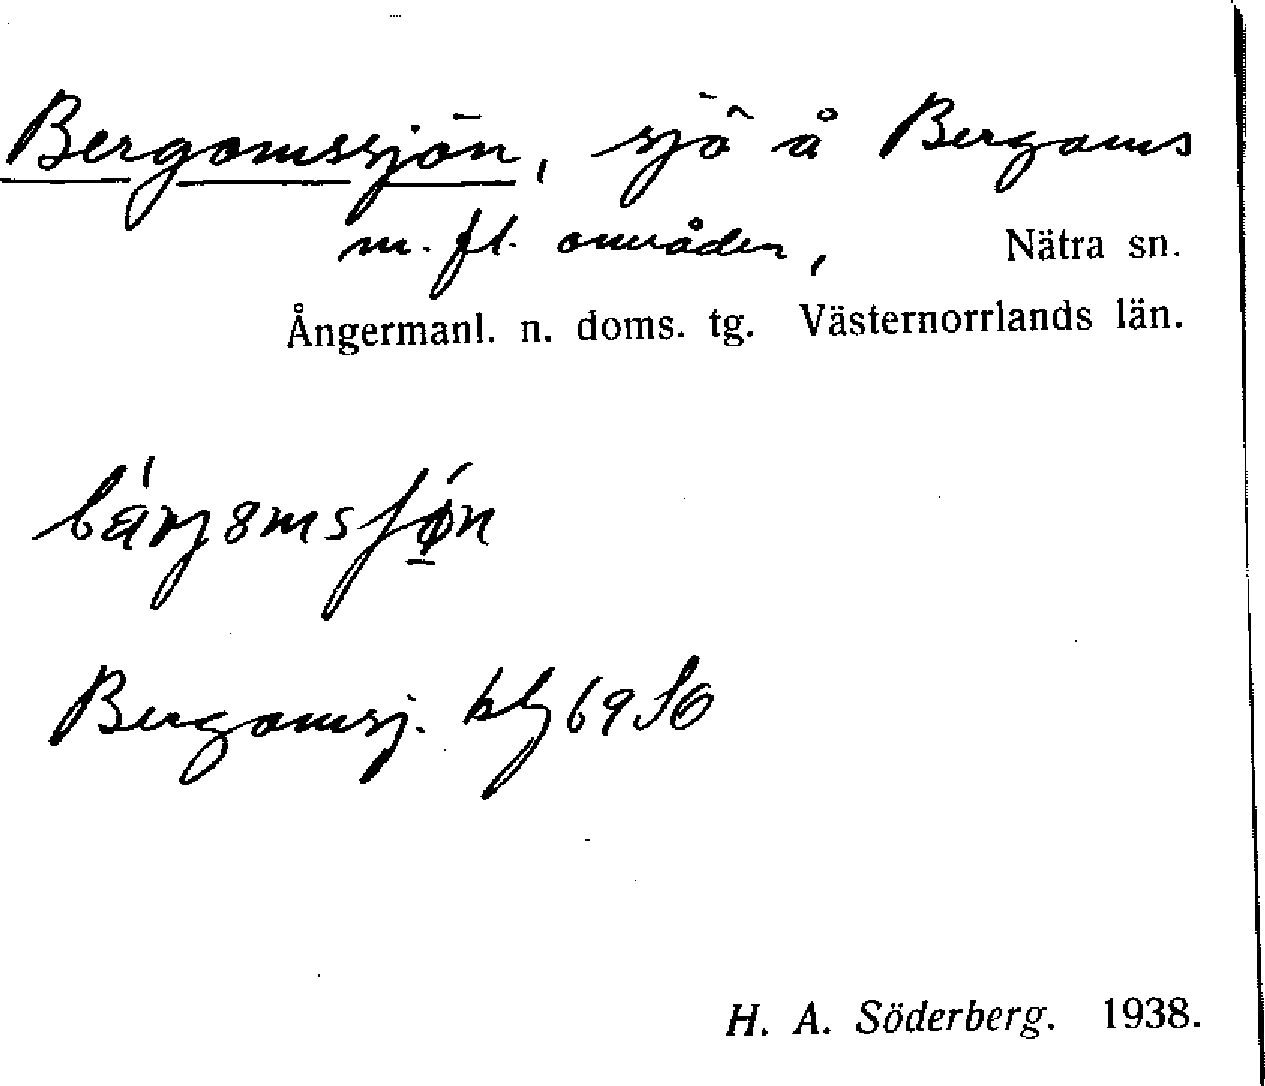 Bergomssjön, sjö å Bergoms
m. fl. områden, Nätra sn.
Ångermanl. n. doms. tg. Västernorrlands län.
Bergomsj. kbl 69 SO
H. A. Söderberg. 1938.